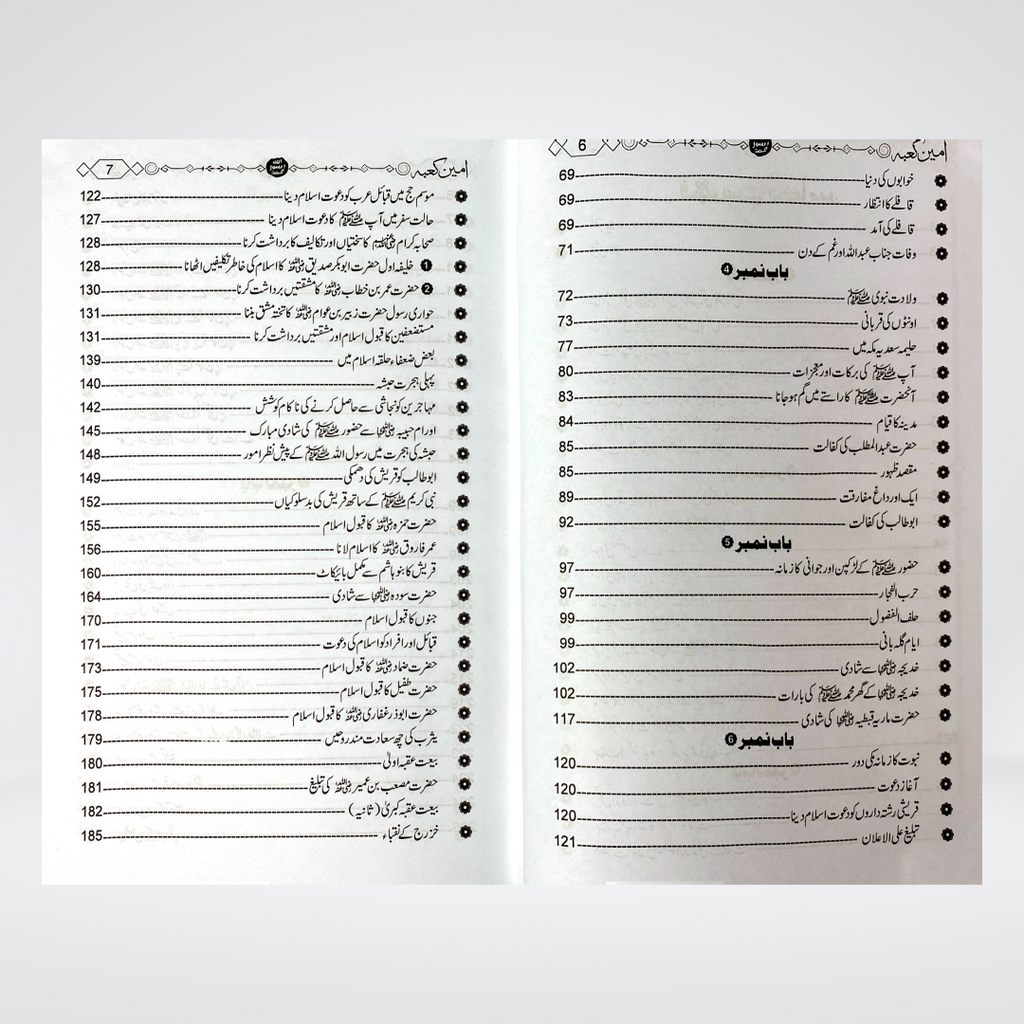 امین کعبہ 6
خوابوں کی دنیا 69
قافلے کا انتظار 69
قافلے کی آمد 69
وفات جناب عبداللہ اور غم کے دن 71
باب نمبر 4
ولادت نبوی ﷺ 72
اونٹوں کی قربانی 73
حلیمہ سعدیہ مکہ میں 77
آپ ﷺ کی برکات اور معجزات 80
آنحضرت ﷺ کا راستے میں گم ہو جانا 83
مدینہ کا قیام 84
حضرت عبدالمطلب کی کفالت 85
مقصد ظہور 85
ایک اور داغ مفارقت 89
ابو طالب کی کفالت 92
باب نمبر 5
حضور ﷺ کے لڑکپن اور جوانی کا زمانہ 97
حرب الفجار 97
حلف الفضول 99
ایام گلہ بانی 99
خدیجہ رضی اللہ عنہا سے شادی 102
خدیجہ رضی اللہ عنہا کے گھر محمد ﷺ کی بارات 102
حضرت ماریہ قبطیہ رضی اللہ عنہا کی شادی 117
باب نمبر 6
نبوت کا زمانہ مکی دور 120
آغاز دعوت 120
قریشی رشتہ داروں کو دعوت اسلام دینا 120
تبلیغ علی الاعلان 121
امین کعبہ 7
موسم حج میں قبائل عرب کو دعوت اسلام دینا 122
حالت سفر میں آپ ﷺ کا دعوت اسلام دینا 127
صحابہ کرام رضی اللہ عنہم کا سختیاں اور تکالیف کا برداشت کرنا 128
1 خلیفہ اول حضرت ابوبکر صدیق رضی اللہ عنہ کا اسلام کی خاطر تکلیفیں اٹھانا 128
2 حضرت عمر بن خطاب رضی اللہ عنہ کا مشقتیں برداشت کرنا 130
حواری رسول حضرت زبیر بن عوام رضی اللہ عنہ کا تختہ مشق بننا 131
مستضعفین کا قبول اسلام اور مشقتیں برداشت کرنا 131
بعض ضعفاء حلقہ اسلام میں 139
پہلی ہجرت حبشہ 140
مہاجرین کو نجاشی سے حاصل کرنے کی ناکام کوشش 142
اور ام حبیبہ رضی اللہ عنہا سے حضور ﷺ کی شادی مبارک 145
حبشہ کی ہجرت میں رسول اللہ ﷺ کے پیش نظر امور 148
ابو طالب کو قریش کی دھمکی 149
نبی کریم ﷺ کے ساتھ قریش کی بدسلوکیاں 152
حضرت حمزہ رضی اللہ عنہ کا قبول اسلام 155
عمر فاروق رضی اللہ عنہ کا اسلام لانا 156
قریش کا بنو ہاشم سے مکمل بائیکاٹ 160
حضرت سودہ رضی اللہ عنہا سے شادی 164
جنوں کا قبول اسلام 170
قبائل اور افراد کو اسلام کی دعوت 171
حضرت ضماد رضی اللہ عنہ کا قبول اسلام 173
حضرت طفیل کا قبول اسلام 175
حضرت ابوذر غفاری رضی اللہ عنہ کا قبول اسلام 178
یثرب کی چھ سعادت مند روحیں 179
بیعت عقبہ اولیٰ 180
حضرت مصعب بن عمیر رضی اللہ عنہ کی تبلیغ 181
بیعت عقبہ کبریٰ (ثانیہ) 182
خزرج کے نقباء 185